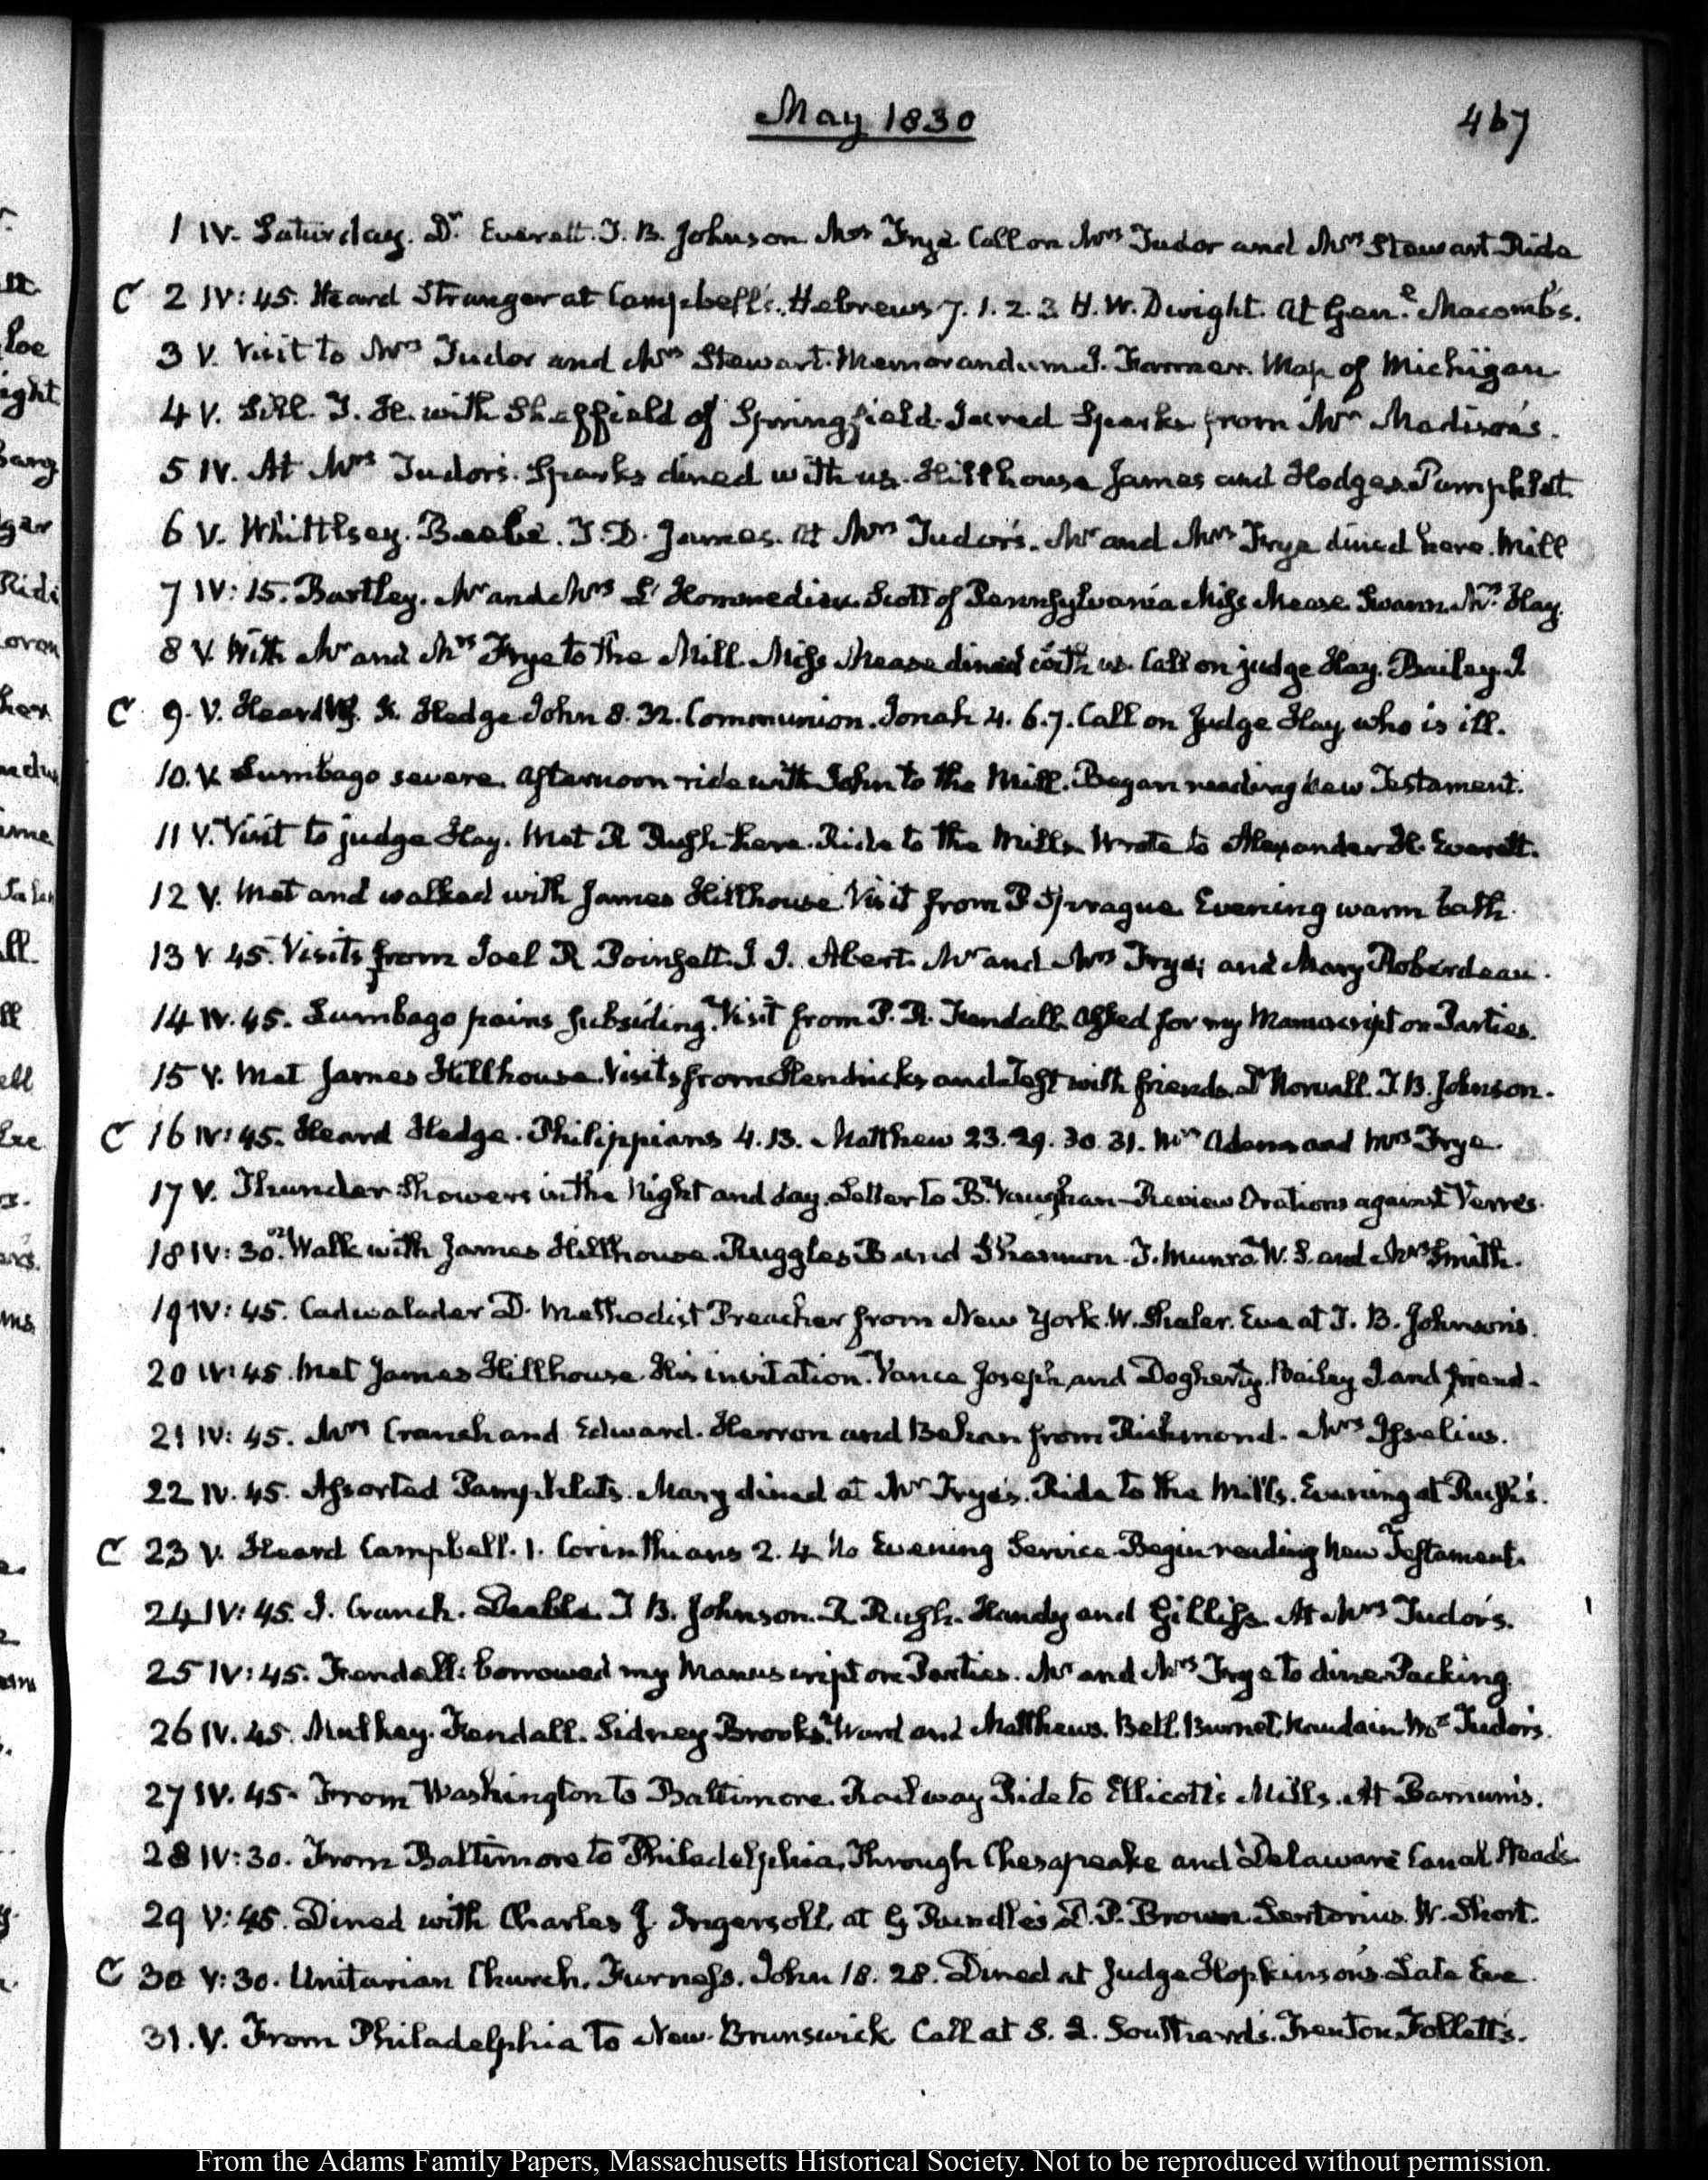 May 1830
467
1 IV. Saturday. Dr. Everett. T. B. Johnson. Mrs Frye. Call on Mrs Tudor and Mrs Stewart. Ride
C 2 IV:45. Heard Stranger at Campbell's. Hebrews 7. 1. 2. 3. H. W. Dwight. At Genl. Macomb's.
3 V. Visit to Mrs Tudor and Mrs Stewart. Memorandum J. Farmer. Map of Michigan
4 V. Sill. T. H. with Sheffield of Springfield. Jared Sparks from Mr Madison's.
5 IV. At Mrs Tudor's. Sparks dined with us. Hillhouse James and Hodges. Pamphlet.
6 V. Whittlsey. Beebe. J. D. James. At Mrs Tudor's. Mr and Mrs Frye dined here. Mill
7 IV:15. Bartley. Mr and Mrs L'Hommedieu. Scott of Pennsylvania Miss Mease. Swann. Mrs Hay.
8 V. With Mr and Mrs Frye to the Mill. Miss Mease dined with us. Call on judge Hay. Bailey. J.
C 9. V. Heard W. K. Hedge John 8. 32. Communion. Jonah 4. 6. 7. Call on Judge Hay, who is ill.
10. V. Lumbago severe. Afternoon ride with John to the Mill. Began reading New Testament.
11 V. Visit to judge Hay. Met R Rush there. Ride to the Mills. Wrote to Alexander H. Everett.
12 V. Met and walked with James Hillhouse. Visit from P Sprague. Evening warm bath.
13 V 45. Visits from Joel R Poinsett. J. J. Abert. Mr and Mrs Frye; and Mary Roberdeau.
14 IV. 45. Lumbago pains subsiding. Visit from P. R. Fendall. Asked for my Manuscript on Parties.
15 V. Met James Hillhouse. Visits from Hendricks and Test with friends. Dr Norvall. T. B. Johnson.
C 16 IV:45. Heard Hedge. Philippians 4. 13. Matthew 23. 29. 30. 31. Mrs Adams and Mrs Frye.
17 V. Thunder Showers in the Night and day. Letter to B. Vaughan—Review Orations against Verres.
18 IV:30. Walk with James Hillhouse. Ruggles B and Shannon. T. Munro. W. S. and Mrs Smith.
19 IV:45. Cadwalader D. Methodist Preacher from New York. W. Shaler. Eve at T. B. Johnson's.
20 IV:45. Met James Hillhouse. His invitation. Vance Joseph, and Dogherty. Bailey J. and friend.
21 IV:45. Mrs Cranch and Edward. Herron and Behan from Richmond. Mrs Isselius.
22 IV. 45. Assorted Pamphlets. Mary dined at Mr Frye's. Ride to the Mills. Evening at Rush's.
C 23 V. Heard Campbell. 1. Corinthians 2. 4. No Evening Service. Begin reading New Testament.
24 IV:45. J. Cranch. T B. Johnson. R. Rush. Handy and Gilliss. At Mrs Tudor's.
25 IV:45. Fendall: borrowed my Manuscript on Parties. Mr and Mrs Frye to dine. Packing.
26 IV. 45. Fendall. Sidney Brooks. Ward and Matthews. Bell. Burnet. Naudain. Mrs Tudor's.
27 IV. 45. From Washington to Baltimore. Railway Ride to Ellicott's Mills. At Barnum's.
28 IV:30. From Baltimore to Philadelphia, Through Chesapeake and Delaware Canal. Heads
29 V:45. Dined with Charles J. Ingersoll, at G Rundle's D. P. Brown. Sertorius. W. Short.
C 30 V:30. Unitarian Church. Furness. John 18. 28. Dined at Judge Hopkinson's. Late Eve.
31. V. From Philadelphia to New-Brunswick. Call at S. L. Southard's. Trenton Follett's.
From the Adams Family Papers, Massachusetts Historical Society. Not to be reproduced without permission.